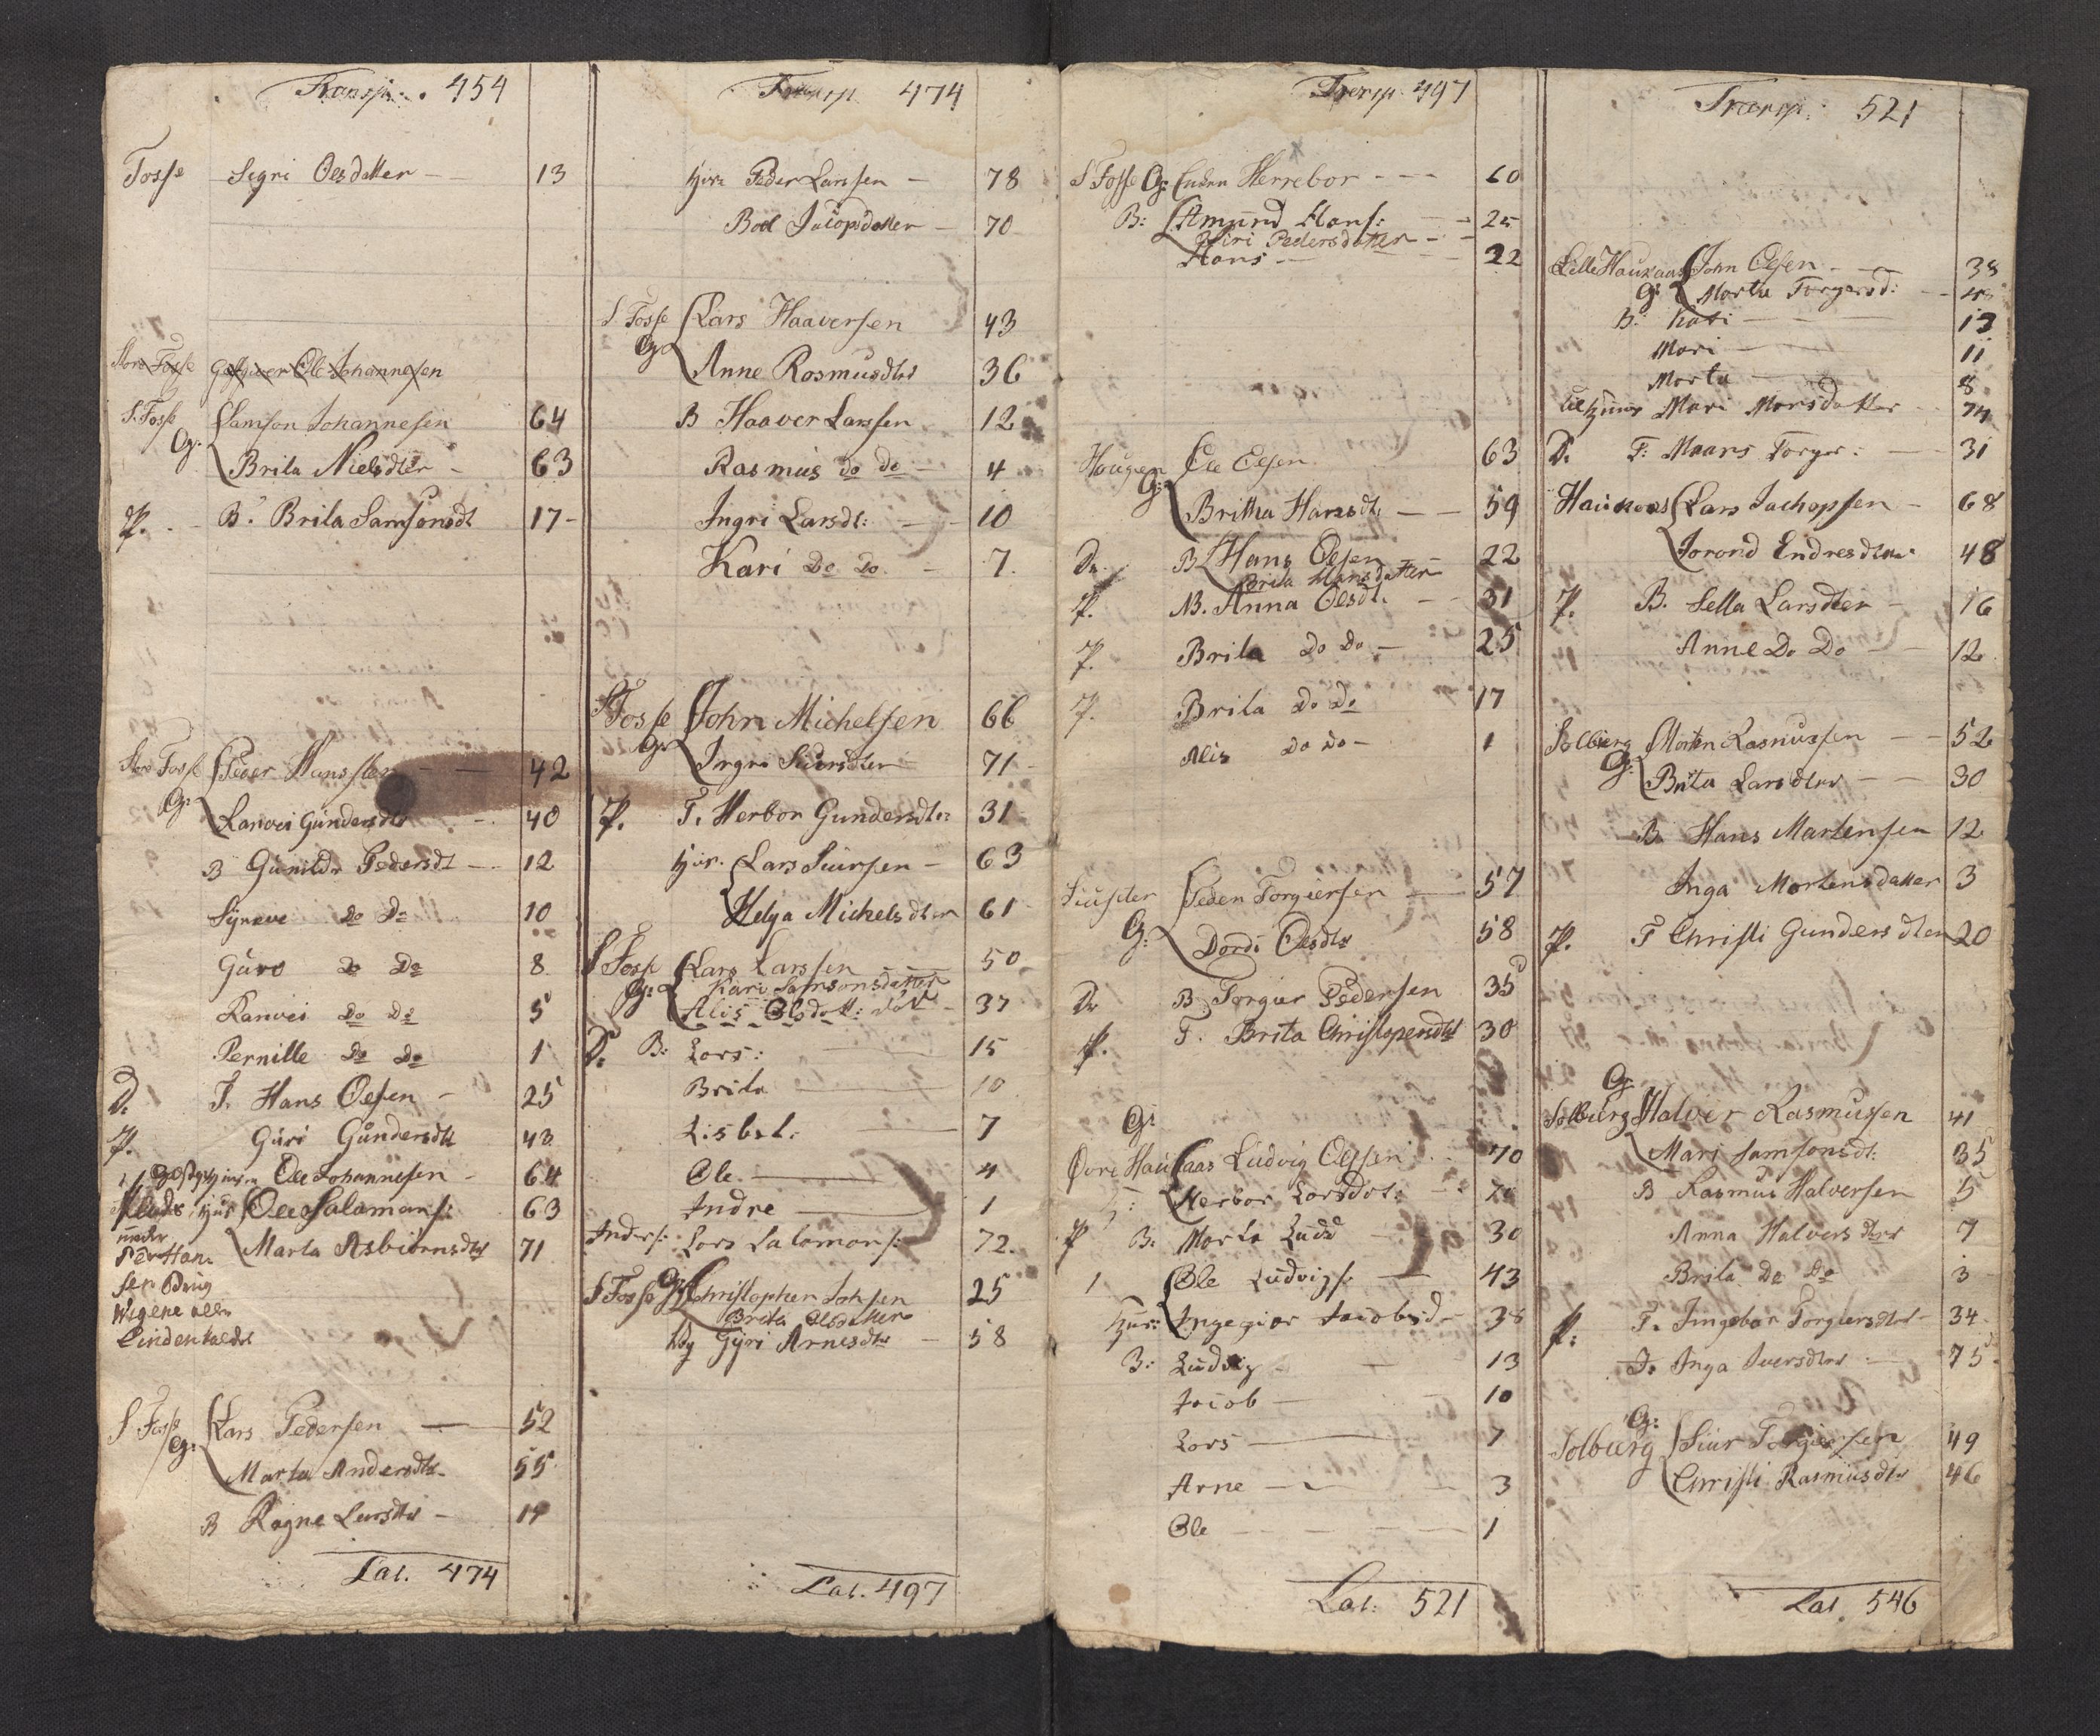 Transp: 454
Fosse Sigri Olsdatter 13
Store Fosse Ole Johannesen
S. Fosse Samson Johannesen 64
G: Brita Nielsdter 63
P. B. Brita Samsonsdt 17
Store Fosse Peder Hanssen 42
G: Ranvei Gundersdtr 40
B Gunilde Pedersdt 12
Synneve do Do 10
Guro do Do 8
Ranvei do Do 5
Pernille do Do 1
D. T. Hans Olesen 25
P. Guri Gundersdtr 43
Ole Johannesen 64
hus Ole Salamons: 63
under Marta Asbiornsdtr 71
Peder Han
sen
S Fosse Lars Pedersen 52
G: Marta Andersdtr 55
B Ragne Larsdtr 19
Lat. 474
Transp. 474
hus: Peder Larssen 78
Boel Jacopsdatter 70
S Fosse Lars Haaversen 43
G: Anne Rasmusdtr 36
B Haaver Larssen 12
Rasmus do do 4
Ingri Larsdt: 10
Kari Do Do 7.
S Fosse John Michelsen 66
G: Ingri Siursdter 71
P. T. Herbor Gundersdtr: 31
hus. Lars Siursen 63
Helga Michelsdter 61
S Fosse Lars Larssen 50
Kari Samsonsdatter
G: Alis Olsdatt: 37
D. B: Lars: 15
Brita 10
Lisbet: 7
Ole 4
Andre 1
Inders: Lars Salamons: 72.
S Fosse G: Christopher Johsen 25
Brita Olsdatter
Gyri Arnesdtr 58
Lat. 497
Transp. 497
S Fosse G: Herrebor 60
B: Amund Hans: 25
Giri Pedersdatter
Hans 22
Hougen Ole Olsen 63
G: Britha Hansdt. 59
D. B Hans Olesen 22
Brita Hansdatter
P. B. Anna Olesdt. 31
P. Brita Do Do 25
P. Brita Do Do 17
Alis Do Do 1
Peder Torgiersen 57
G: Dordi Olesdtr 58
D. B. Torgier Pedersen 35
P. T. Brita Christopersdtr 30
G:
Øvre Haukaas Ludvig Olessen 70
Herbor Larsdat:
P B: Marta Luds 30
1 Ole Ludvigs: 43
huus: Ingegior Jacobsd 38
B: Ludvig 13
Jacob 10
Lars 7
Arne 3
Ole 1
Lat: 521
Transp: 521
Lille Haukaas John Olesen 38
G: Marta Torgersd:
B: Kari 13
Mari 11
Marta 8
Mari Monsdatter 74
D. T: Maans Torger: 31
Haukaas Lars Jachopsen 68
Jorond Endresdtr 48
P. B. Sella Larsdter 16
Anne Do Do 12
Solberg Morten Rasmussen 52
G: Brita Larsdter 30
B Hans Martensen 12
Inga Mortensdatter 3
P. T Christi Gundersdter 20
G:
Solburg Halver Rasmussen 41
Mari Samsonsdt: 35
B Rasmus Halversen 5
Anna Halversdter 7
Brita Do Do 3
P: T. Ingebor Torgiersdtr 34
T. Inga Iversdter 75
G:
Solburg Siur Torgiersen 49
Christi Rasmusdtr 46
Lat. 546